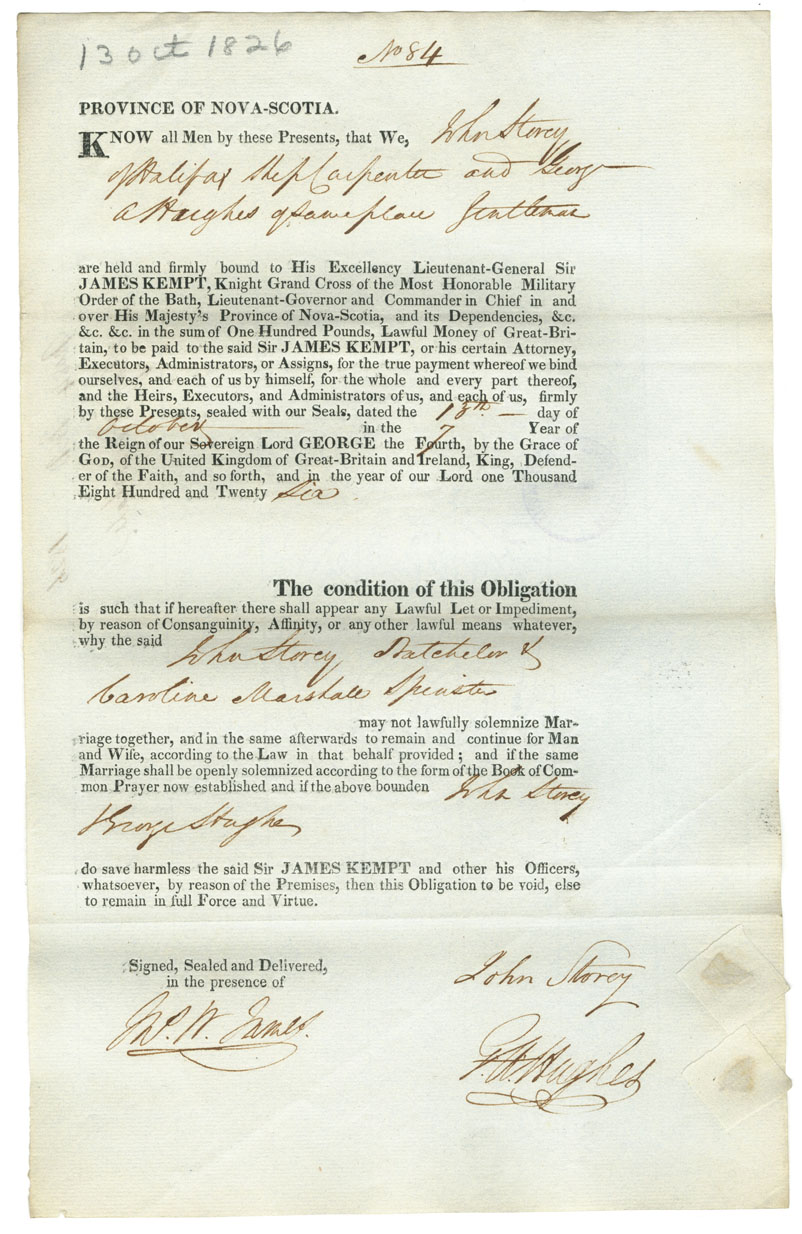 13 Oct 1826
No 84
PROVINCE OF NOVA-SCOTIA.
KNOW all Men by these Presents, that We, John Storey
of Halifax Ship Carpenter and George
A Hughes of same place Gentleman
are held and firmly bound to His Excellency Lieutenant-General Sir
JAMES KEMPT, Knight Grand Cross of the Most Honorable Military
Order of the Bath, Lieutenant-Governor and Commander in Chief in and
over His Majesty's Province of Nova-Scotia, and its Dependencies, &c.
&c. &c. in the sum of One Hundred Pounds, Lawful Money of Great-Bri-
tain, to be paid to the said Sir JAMES KEMPT, or his certain Attorney,
Executors, Administrators, or Assigns, for the true payment whereof we bind
ourselves, and each of us by himself, for the whole and every part thereof,
and the Heirs, Executors, and Administrators of us, and each of us, firmly
by these Presents, sealed with our Seals, dated the 13th — day of
October — in the 7 Year of
the Reign of our Sovereign Lord GEORGE the Fourth, by the Grace of
GOD, of the United Kingdom of Great-Britain and Ireland, King, Defend-
er of the Faith, and so forth, and in the year of our Lord one Thousand
Eight Hundred and Twenty Six.
The condition of this Obligation
is such that if hereafter there shall appear any Lawful Let or Impediment,
by reason of Consanguinity, Affinity, or any other lawful means whatever,
why the said
John Storey Batchelor &
Caroline Marshall Spinster
may not lawfully solemnize Mar-
riage together, and in the same afterwards to remain and continue for Man
and Wife, according to the Law in that behalf provided; and if the same
Marriage shall be openly solemnized according to the form of the Book of Com-
mon Prayer now established and if the above bounden John Storey
& George Hughes
do save harmless the said Sir JAMES KEMPT and other his Officers,
whatsoever, by reason of the Premises, then this Obligation to be void, else
to remain in full Force and Virtue.
Signed, Sealed and Delivered,
in the presence of
John Storey
W. James.
A. Hughes